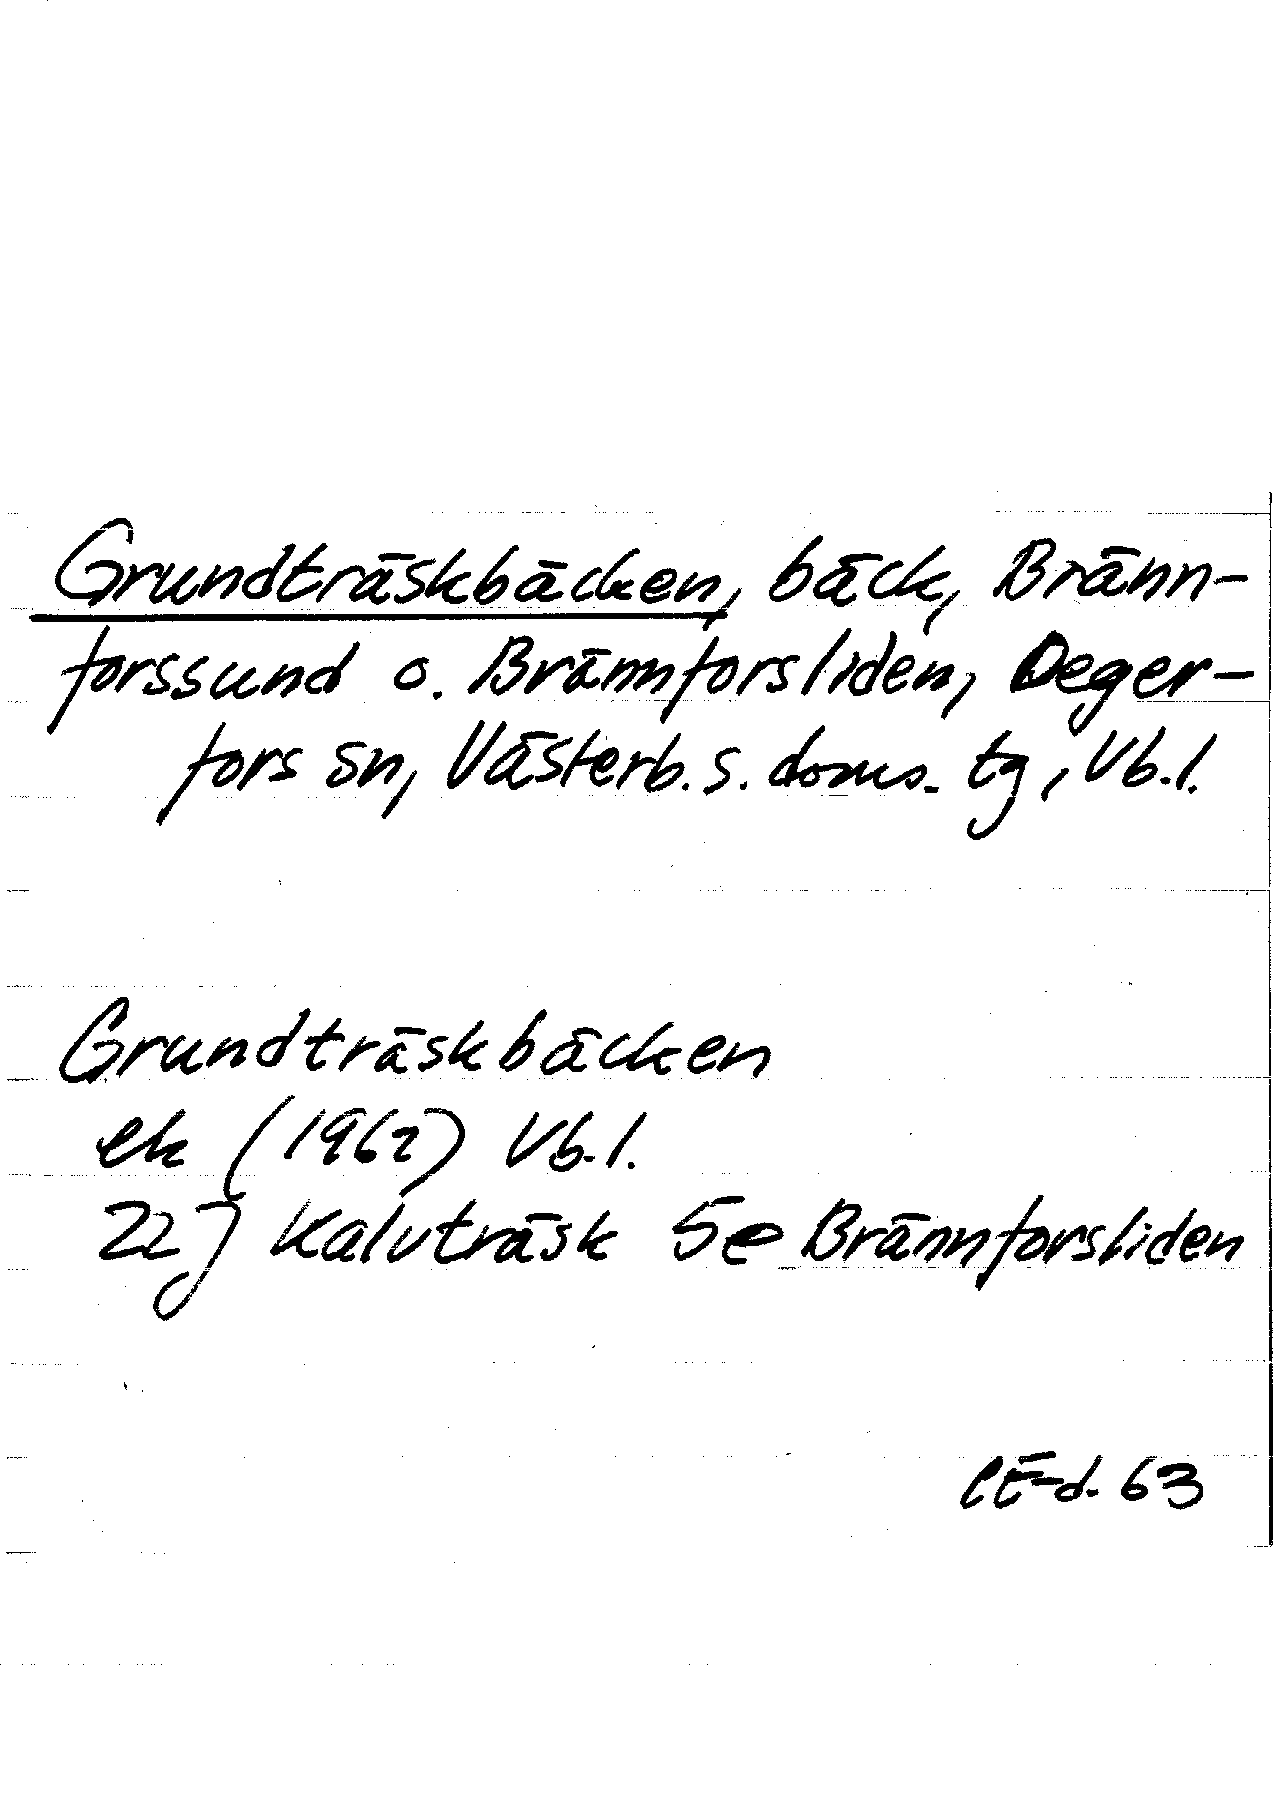 Grundträskbäcken, bäck, Bränn-
forssund o. Brännforsliden, Deger-
fors sn, Västerb. s. doms. tg, Vb.l.
Grundträskbäcken
ek (1962) Vb.l.
22 J Kalvträsk 5e Brännforsliden
CE-d. 63